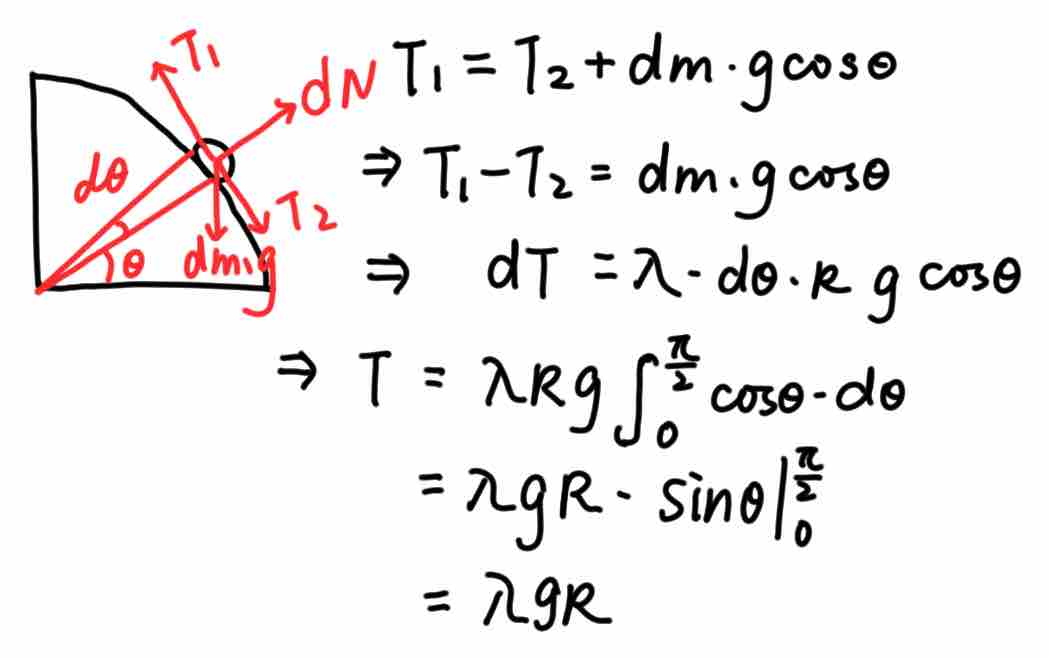 T₁
dN
dθ
T₂
θ
dm·g
T₁ = T₂ + dm·gcosθ
⇒ T₁-T₂ = dm·gcosθ
⇒ dT = λ·dθ·R g cosθ
⇒ T = λRg∫₀^(π/2) cosθ·dθ
= λgR· sinθ|₀^(π/2)
= λgR